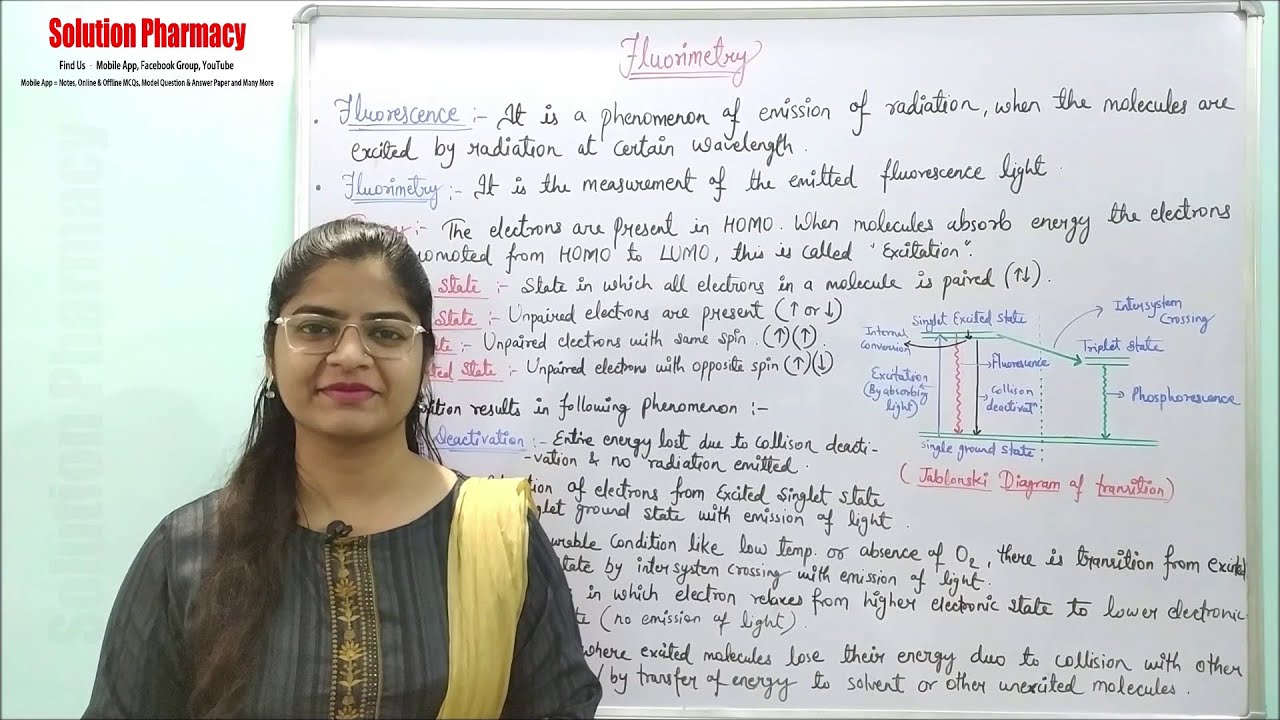 Solution Pharmacy
Find Us - Mobile App, Facebook Group, YouTube
Mobile App = Notes, Online & Offline MCQs, Model Question & Answer Paper and Many More
Solution Pharmacy
Fluorimetry
• Fluorescence :- It is a phenomenon of emission of radiation, when the molecules are
excited by radiation at certain wavelength.
• Fluorimetry :- It is the measurement of the emitted fluorescence light.
:- The electrons are present in HOMO. When molecules absorb energy the electrons
from HOMO to LUMO, this is called "Excitation".
State :- State in which all electrons in a molecule is paired (↑↓).
State :- Unpaired electrons are present (↑ or ↓)
:- Unpaired electrons with same spin. (↑)(↑).
State :- Unpaired electrons with opposite spin (↑)(↓)
results in following phenomenon :-
Deactivation :- Entire energy lost due to collison deacti-
-vation & no radiation emitted.
of electrons from Excited Singlet state
ground state with emission of light.
condition like low temp. or absence of O2, there is transition from excited
by intersystem crossing with emission of light.
in which electron relaxes from higher electronic state to lower electronic
(no emission of light).
where exited molecules lose their energy duo to collision with other
by transfer of energy to solvent or other unexcited molecules.
Singlet Excited State
Intersystem
Crossing
Internal
conversion
Triplet State
Fluorescence
Excitation
(By absorbing
light)
Collison
deactivatn
Phosphorescence
single ground state
(Jablonski Diagram of transition)